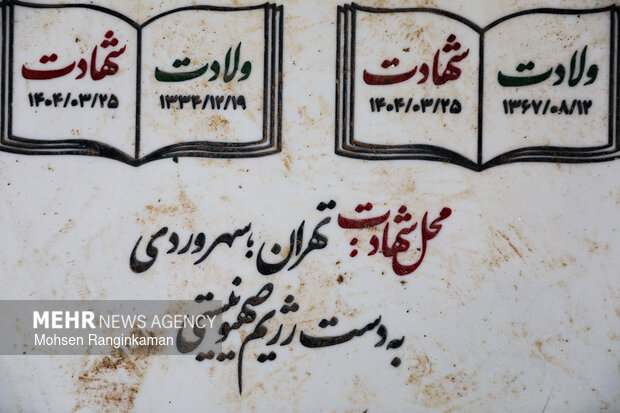 ولادت شهادت ولادت شهادت
۱۳۶۷/۰۸/۱۲ ۱۴۰۴/۰۳/۲۵ ۱۳۳۴/۱۲/۱۹ ۱۴۰۴/۰۳/۲۵
محل شهادت: تهران؛ سهروردی
به دست رژیم صهیونیستی
MEHR NEWS AGENCY
Mohsen Ranginkaman